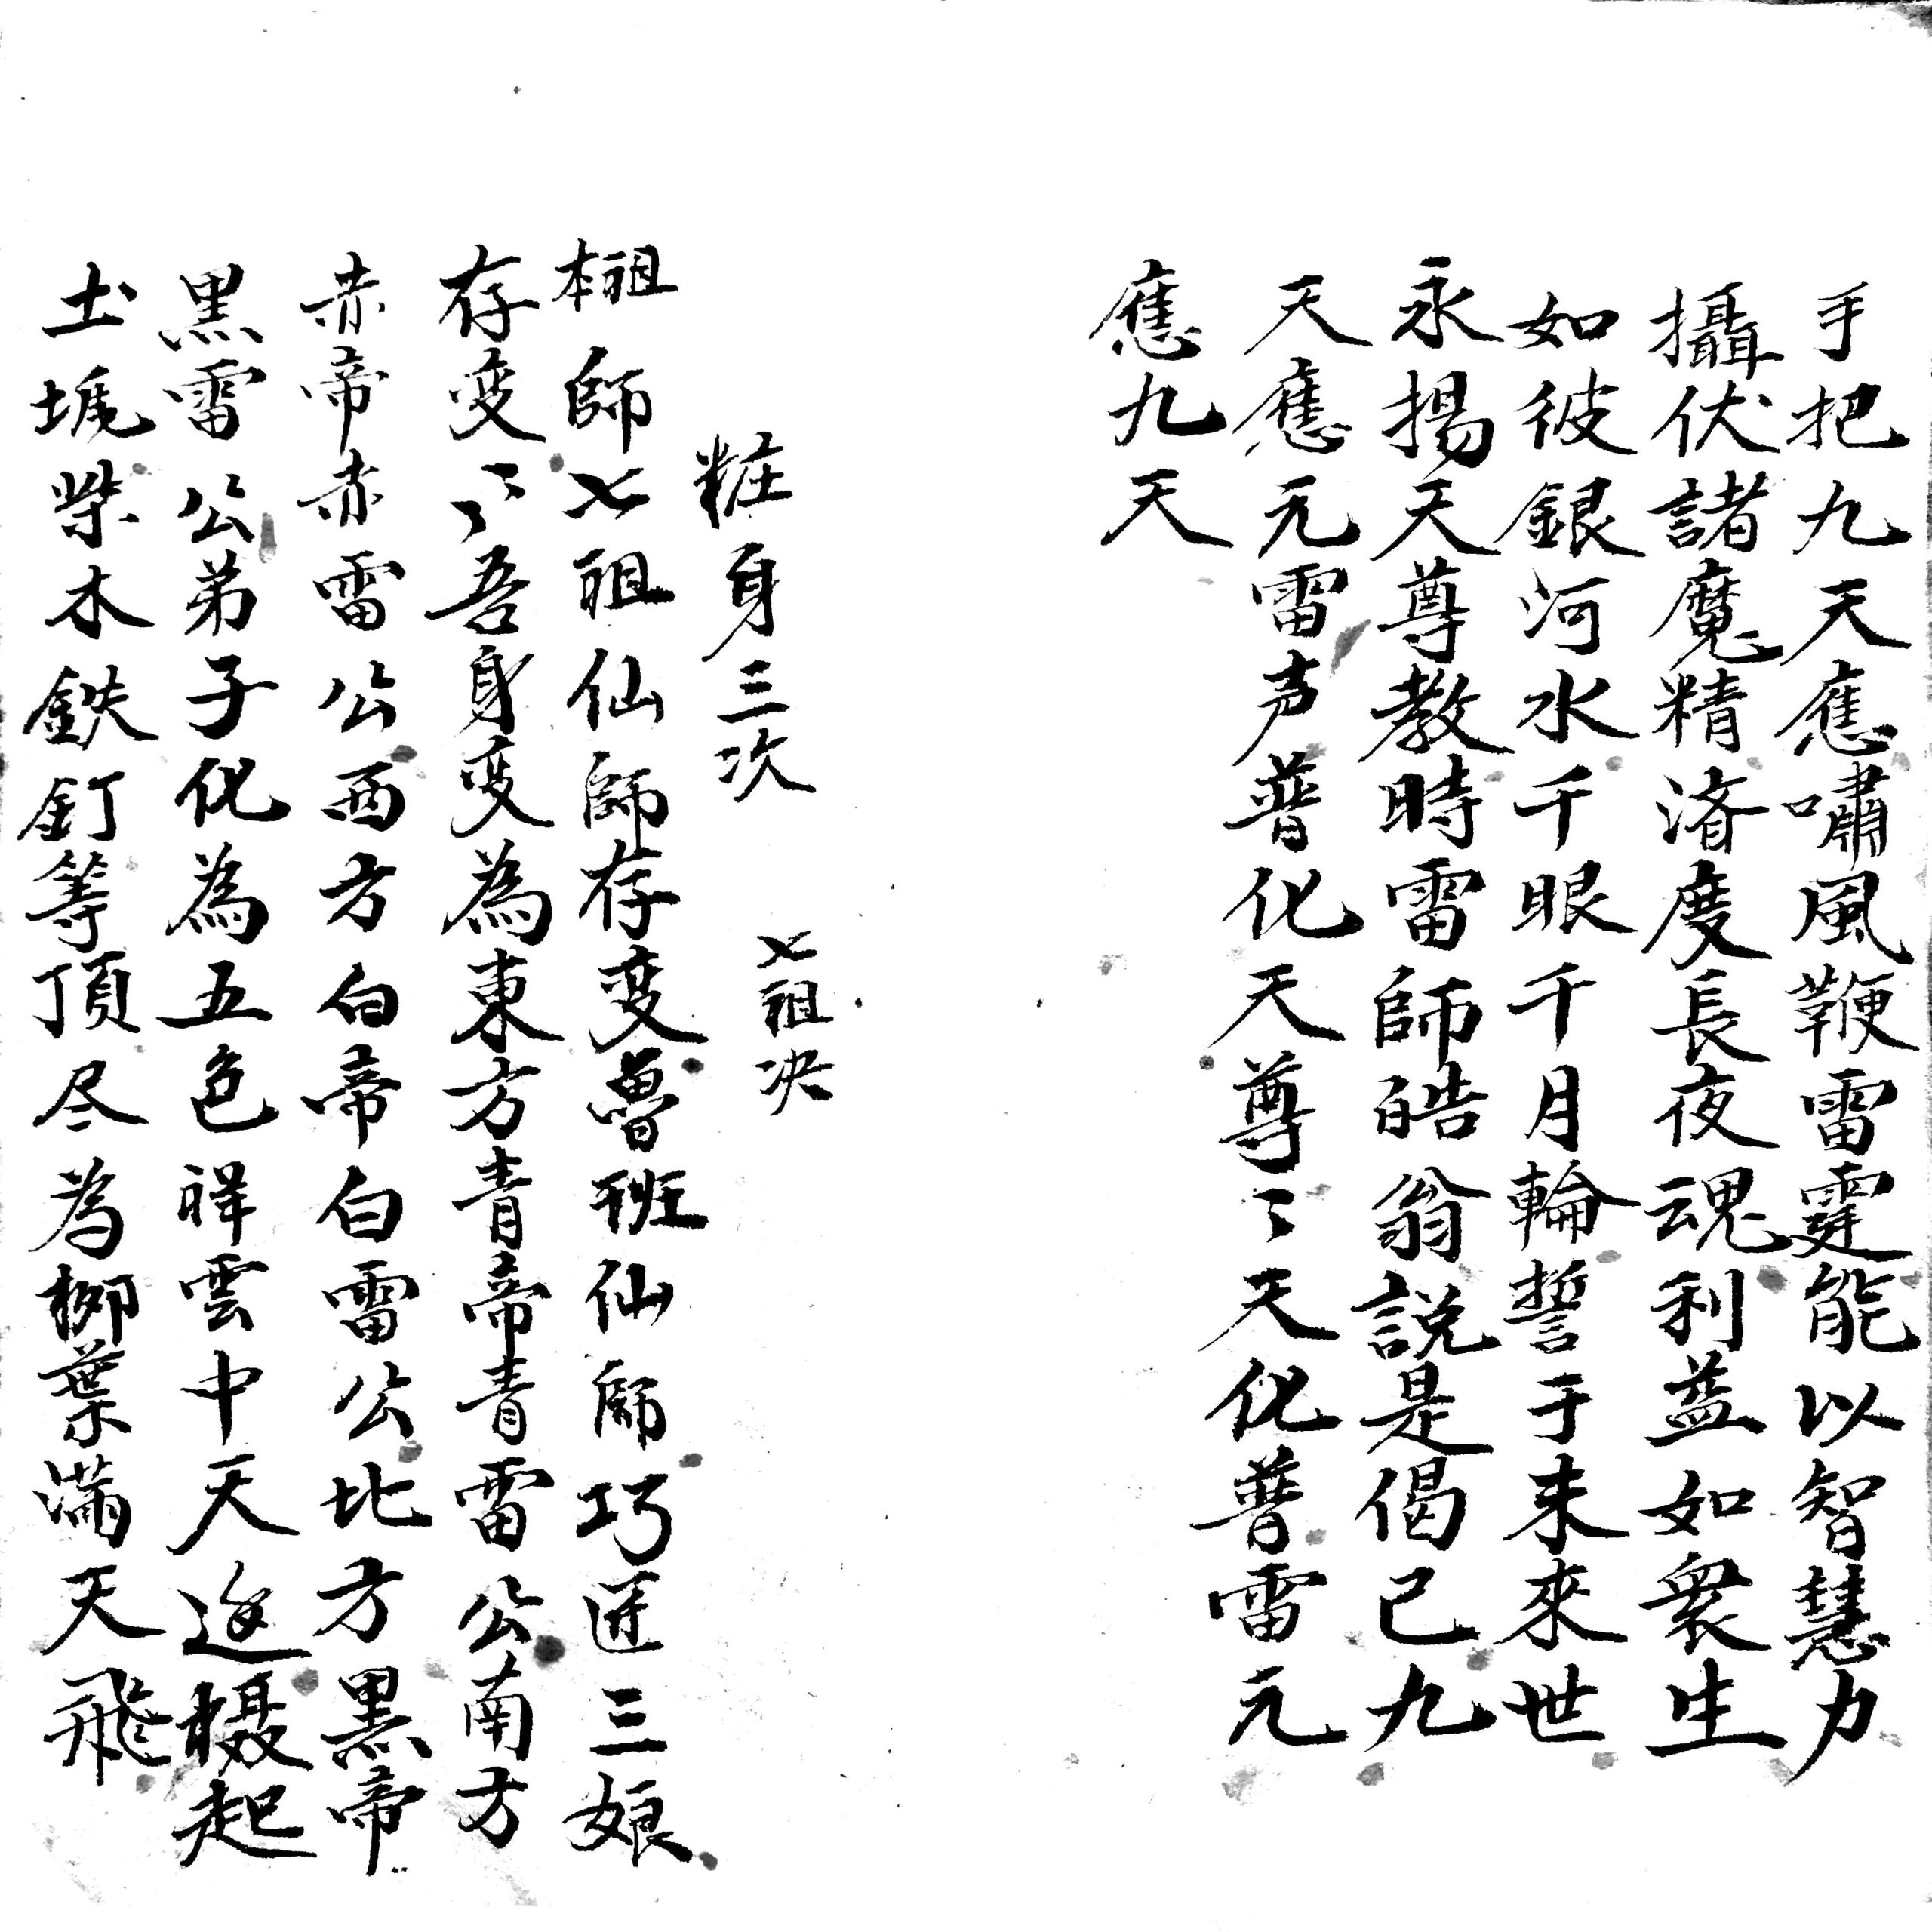 手把九天應嘯風鞭雷霆能以智慧力
攝伏諸魔精濟度長夜魂利益如衆生
如彼銀河水千眼千月輪誓于未來世
永揚天尊教時雷師皓翁説是偈已九
天應元雷声普化天尊〻天化普雷元
應九天
粧身三次 七祖决
本祖師七祖仙師存变魯班仙師巧匠三娘
存变〻〻吾身变為東方青帝青雷公南方
赤帝赤雷公西方白帝白雷公北方黒帝
黒雷公弟子化為五色祥雲中天迯摄起
土塊柴木鉄釘等頂尽為柳葉满天飛